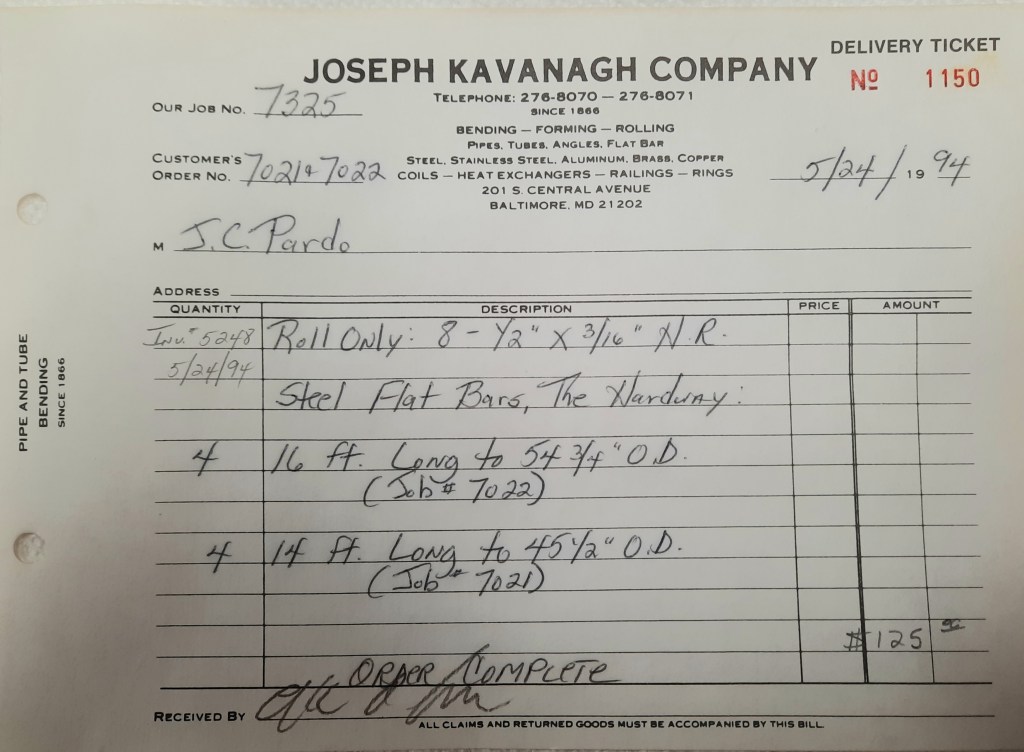 DELIVERY TICKET
JOSEPH KAVANAGH COMPANY
Nº 1150
TELEPHONE: 276-8070 — 276-8071
SINCE 1866
OUR JOB NO. 7325
BENDING — FORMING — ROLLING
PIPES, TUBES, ANGLES, FLAT BAR
STEEL, STAINLESS STEEL, ALUMINUM, BRASS, COPPER
CUSTOMER'S ORDER NO. 7021 & 7022
COILS — HEAT EXCHANGERS — RAILINGS — RINGS
201 S. CENTRAL AVENUE
BALTIMORE, MD 21202
5/24/ 19 94
M J.C. Pardo
ADDRESS
QUANTITY DESCRIPTION PRICE AMOUNT
Inv.# 5248 Roll Only: 8 - 1/2" X 3/16" H.R.
5/24/94
Steel Flat Bars, The Hardway:
4 16 ft. Long to 54 3/4" O.D.
(Job # 7022)
4 14 ft. Long to 45 1/2" O.D.
(Job # 7021)
$125 00
ORDER COMPLETE
RECEIVED BY
ALL CLAIMS AND RETURNED GOODS MUST BE ACCOMPANIED BY THIS BILL
PIPE AND TUBE
BENDING
SINCE 1866